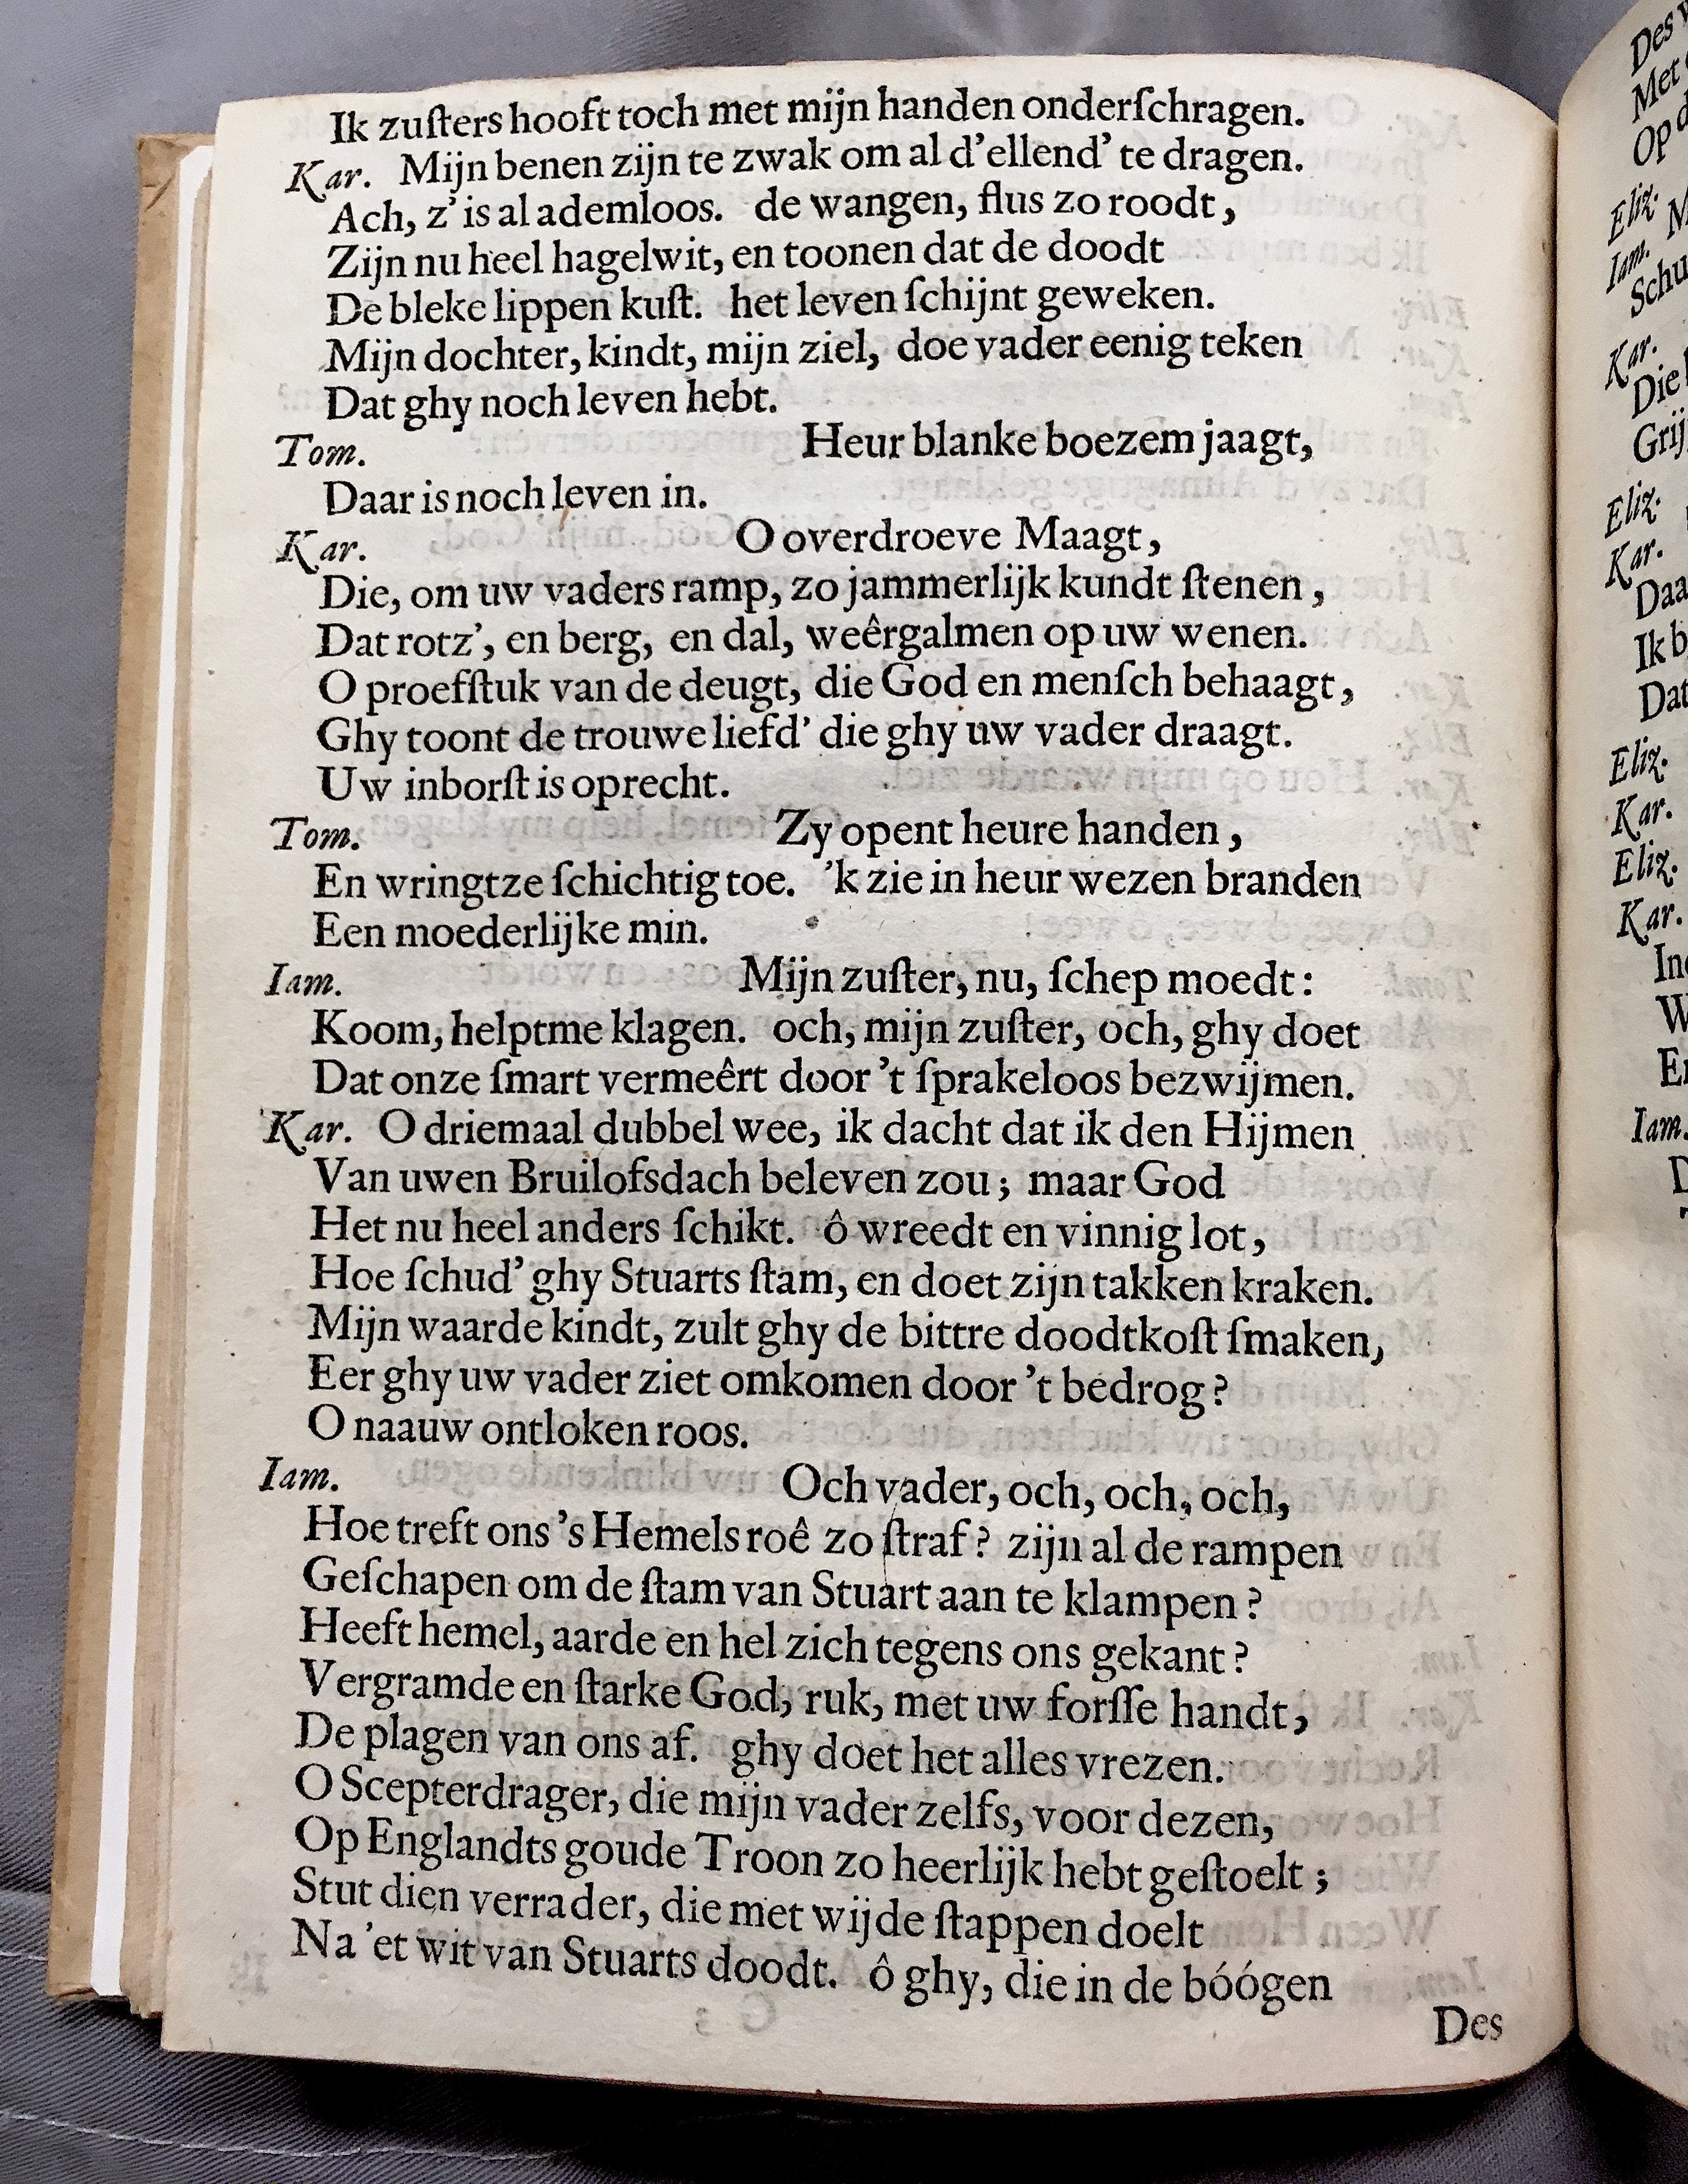 Ik zuſters hooft toch met mijn handen onderſchragen.
Kar. Mijn benen zijn te zwak om al d'ellend' te dragen.
Ach, z' is al ademloos. de wangen, flus zo roodt,
Zijn nu heel hagelwit, en toonen dat de doodt
De bleke lippen kuſt. het leven ſchijnt geweken.
Mijn dochter, kindt, mijn ziel, doe vader eenig teken
Dat ghy noch leven hebt.
Tom. Heur blanke boezem jaagt,
Daar is noch leven in.
Kar. O overdroeve Maagt,
Die, om uw vaders ramp, zo jammerlijk kundt ſtenen,
Dat rotz', en berg, en dal, weêrgalmen op uw wenen.
O proefſtuk van de deugt, die God en menſch behaagt,
Ghy toont de trouwe liefd' die ghy uw vader draagt.
Uw inborſt is oprecht.
Tom. Zy opent heure handen,
En wringtze ſchichtig toe. 'k zie in heur wezen branden
Een moederlijke min.
Iam. Mijn zuſter, nu, ſchep moedt:
Koom, helptme klagen. och, mijn zuſter, och, ghy doet
Dat onze ſmart vermeêrt door 't ſprakeloos bezwijmen.
Kar. O driemaal dubbel wee, ik dacht dat ik den Hijmen
Van uwen Bruilofsdach beleven zou; maar God
Het nu heel anders ſchikt. ô wreedt en vinnig lot,
Hoe ſchud' ghy Stuarts ſtam, en doet zijn takken kraken.
Mijn waarde kindt, zult ghy de bittre doodtkoſt ſmaken,
Eer ghy uw vader ziet omkomen door 't bedrog?
O naauw ontloken roos.
Iam. Och vader, och, och, och,
Hoe treft ons 's Hemels roê zo ſtraf? zijn al de rampen
Geſchapen om de ſtam van Stuart aan te klampen?
Heeft hemel, aarde en hel zich tegens ons gekant?
Vergramde en ſtarke God, ruk, met uw forſſe handt,
De plagen van ons af. ghy doet het alles vrezen.
O Scepterdrager, die mijn vader zelfs, voor dezen,
Op Englandts goude Troon zo heerlijk hebt geſtoelt;
Stut dien verrader, die met wijde ſtappen doelt
Na 'et wit van Stuarts doodt. ô ghy, die in de bóógen
Des
Des
Met
Op
Eliz.
Iam.
Schu
Kar.
Die
Grij
Eliz.
Kar.
Daa
Ik b
Dat
Eliz.
Kar.
Eliz.
Kar.
In
W
Iam.